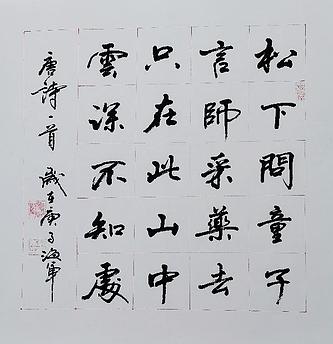 松下問童子
言師采藥去
只在此山中
雲深不知處
唐詩一首 歲在庚子海軍